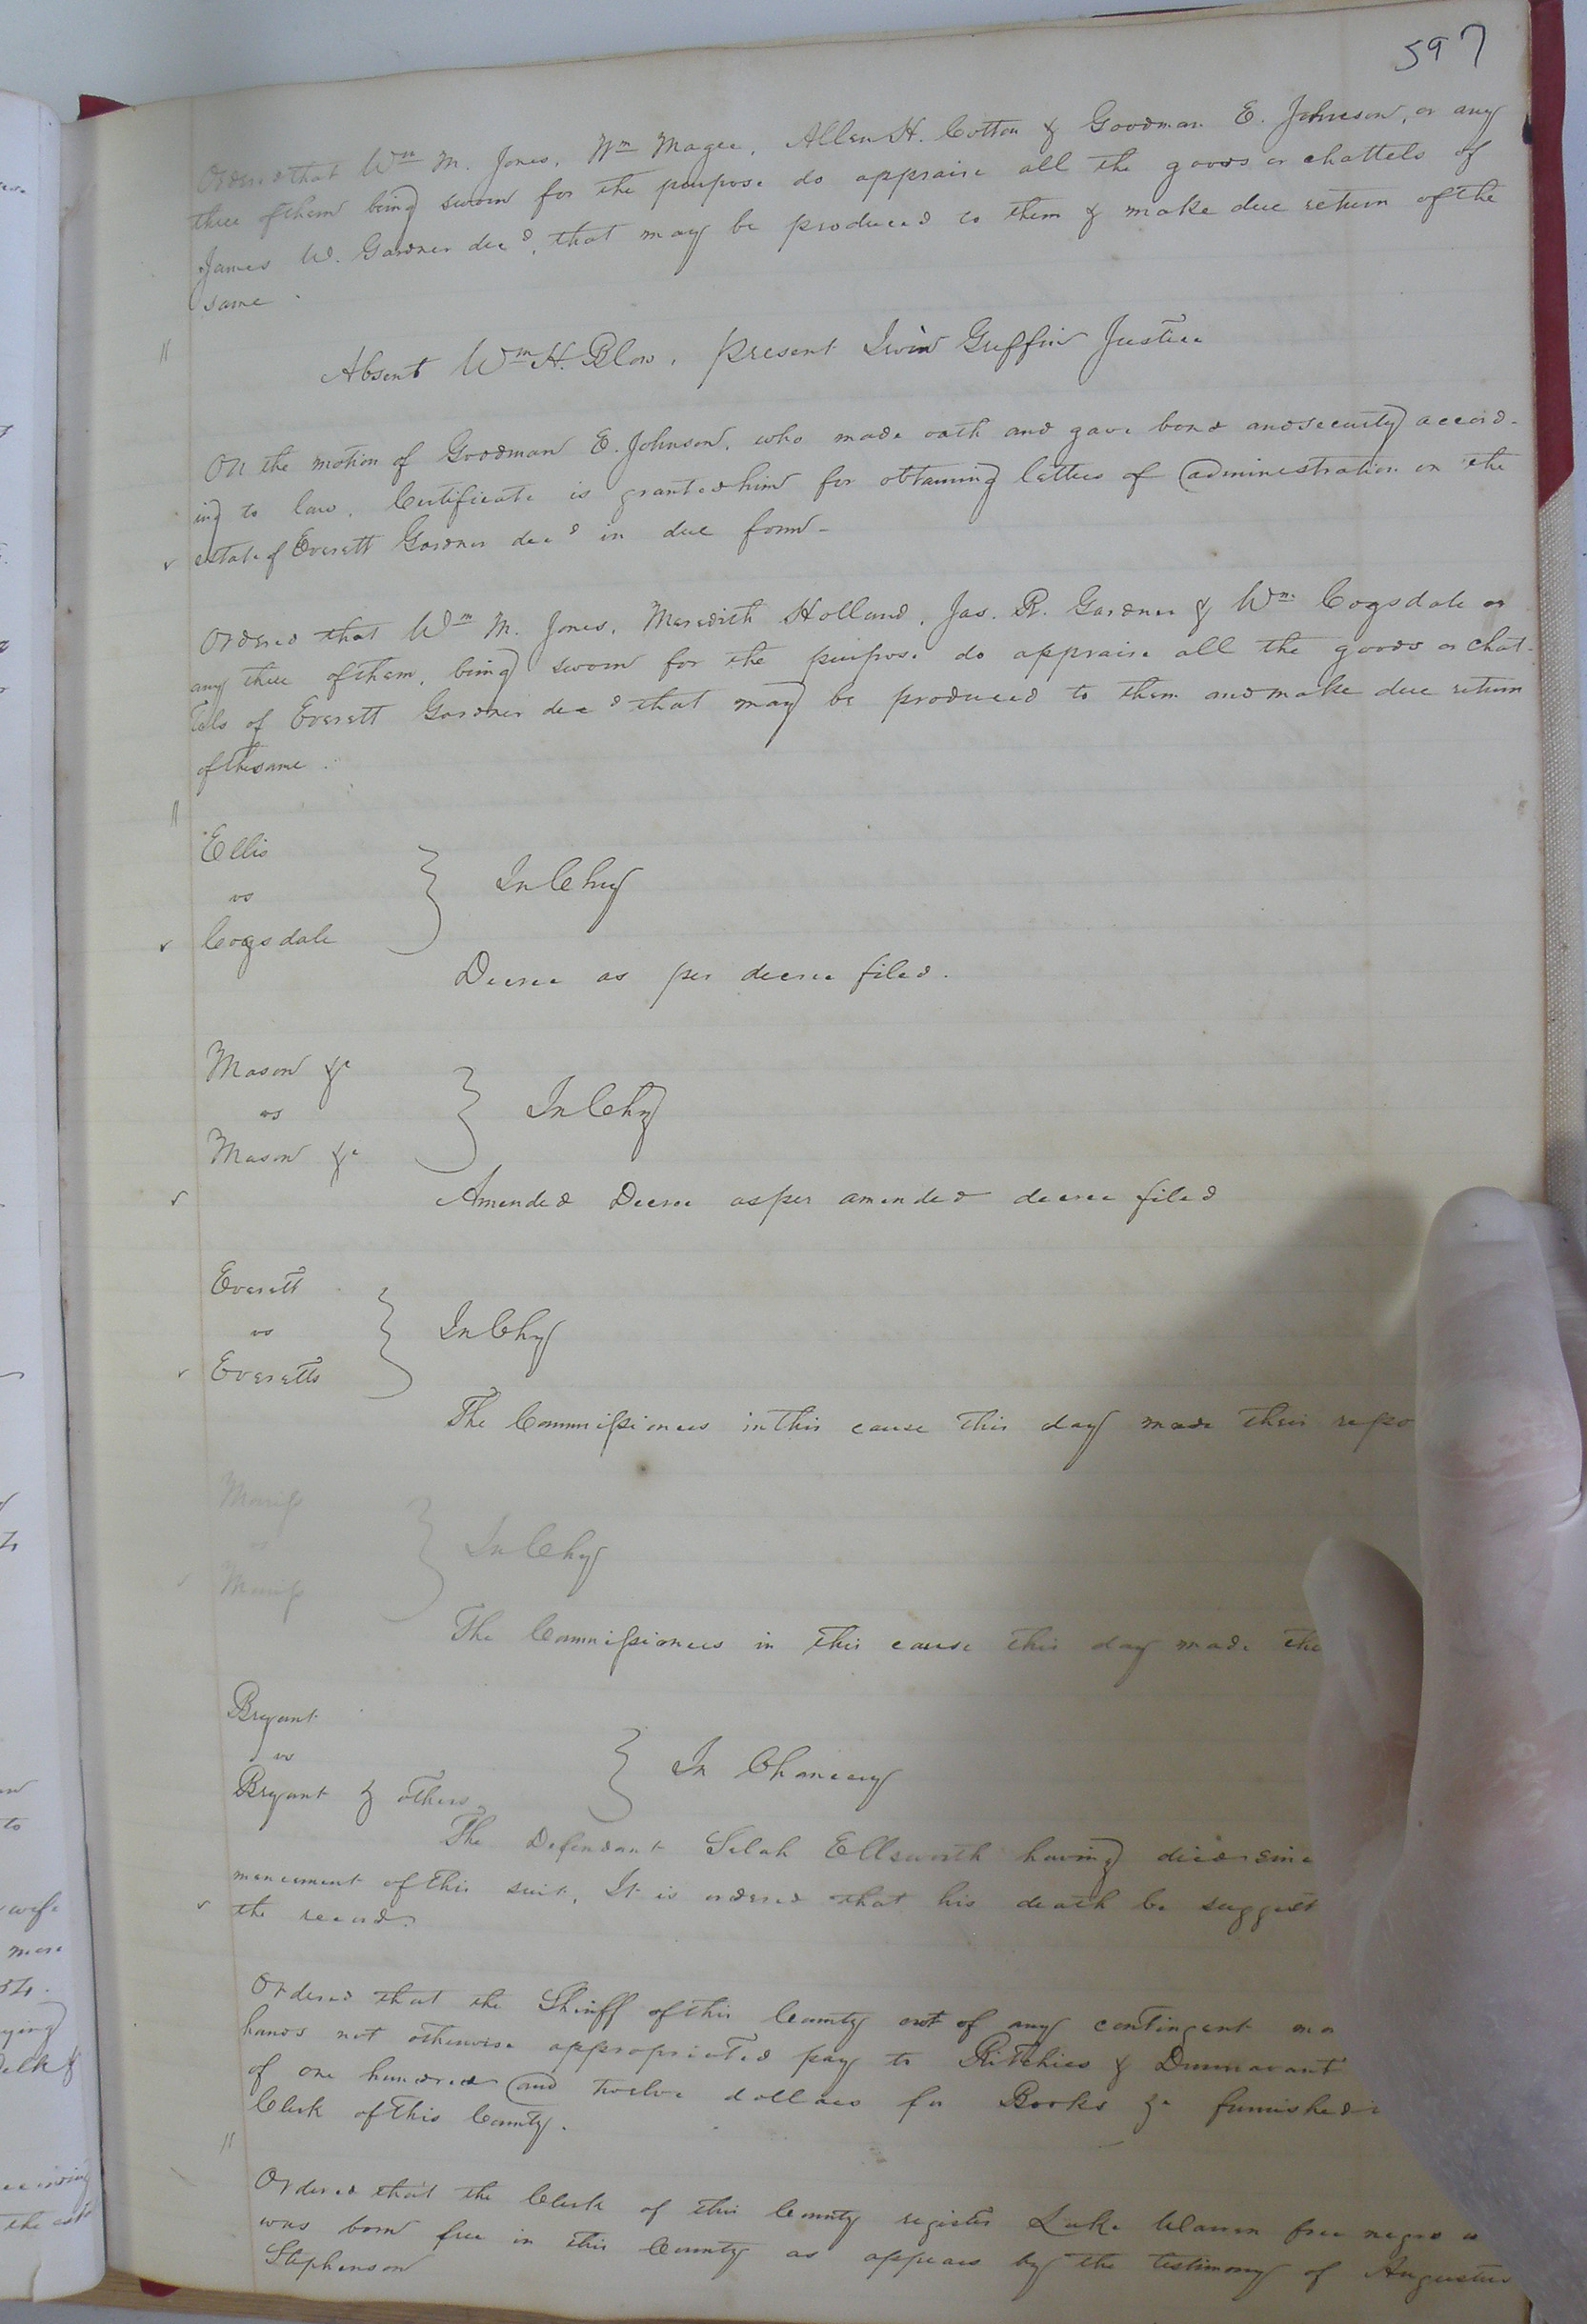 597
Ordered that Wm M. Jones, Wm Magee, Allen H. Cotton & Goodman E. Johnson, or any
three of them being sworn for the purpose do appraise all the goods or chattels of
James W. Gardner decd, that may be produced to them & make due return of the
same.
Absent Wm H. Blow, present Irvin Griffin Justice
On the motion of Goodman E. Johnson, who made oath and gave bond and security accord-
ing to law. Certificate is granted him for obtaining letters of administration on the
estate of Everett Gardner decd in due form-
Ordered that Wm M. Jones, Meredith Holland, Jas. R. Gardner & Wm Cogsdale or
any three of them, being sworn for the purpose do appraise all the goods or chat-
tels of Everett Gardner decd that may be produced to them and make due return
of the same.
Ellis
vs
Cogsdale
In Chy
Decree as per decree filed.
Mason &c
vs
Mason &c
In Chy
Amended Decree as per amended decree filed
Everett
vs
Everetts
In Chy
The Commissioners in this cause this day made their repo
vs
In Chy
The Commissioners in this cause this day made the
Bryant
vs
Bryant & others
In Chancery
The Defendant Selah Ellsworth having died since
mencement of this suit, It is ordered that his death be suggest
the record.
Ordered that the Sheriff of this County out of any contingent mo
hands not otherwise appropriated pay to Ritchies & Dunnavant
of one hundred and twelve dollars for Books &c furnished
Clerk of this County.
Ordered that the Clerk of this County register Luke free negro
was born free in this County as appears by the testimony of Augustus
Stephenson